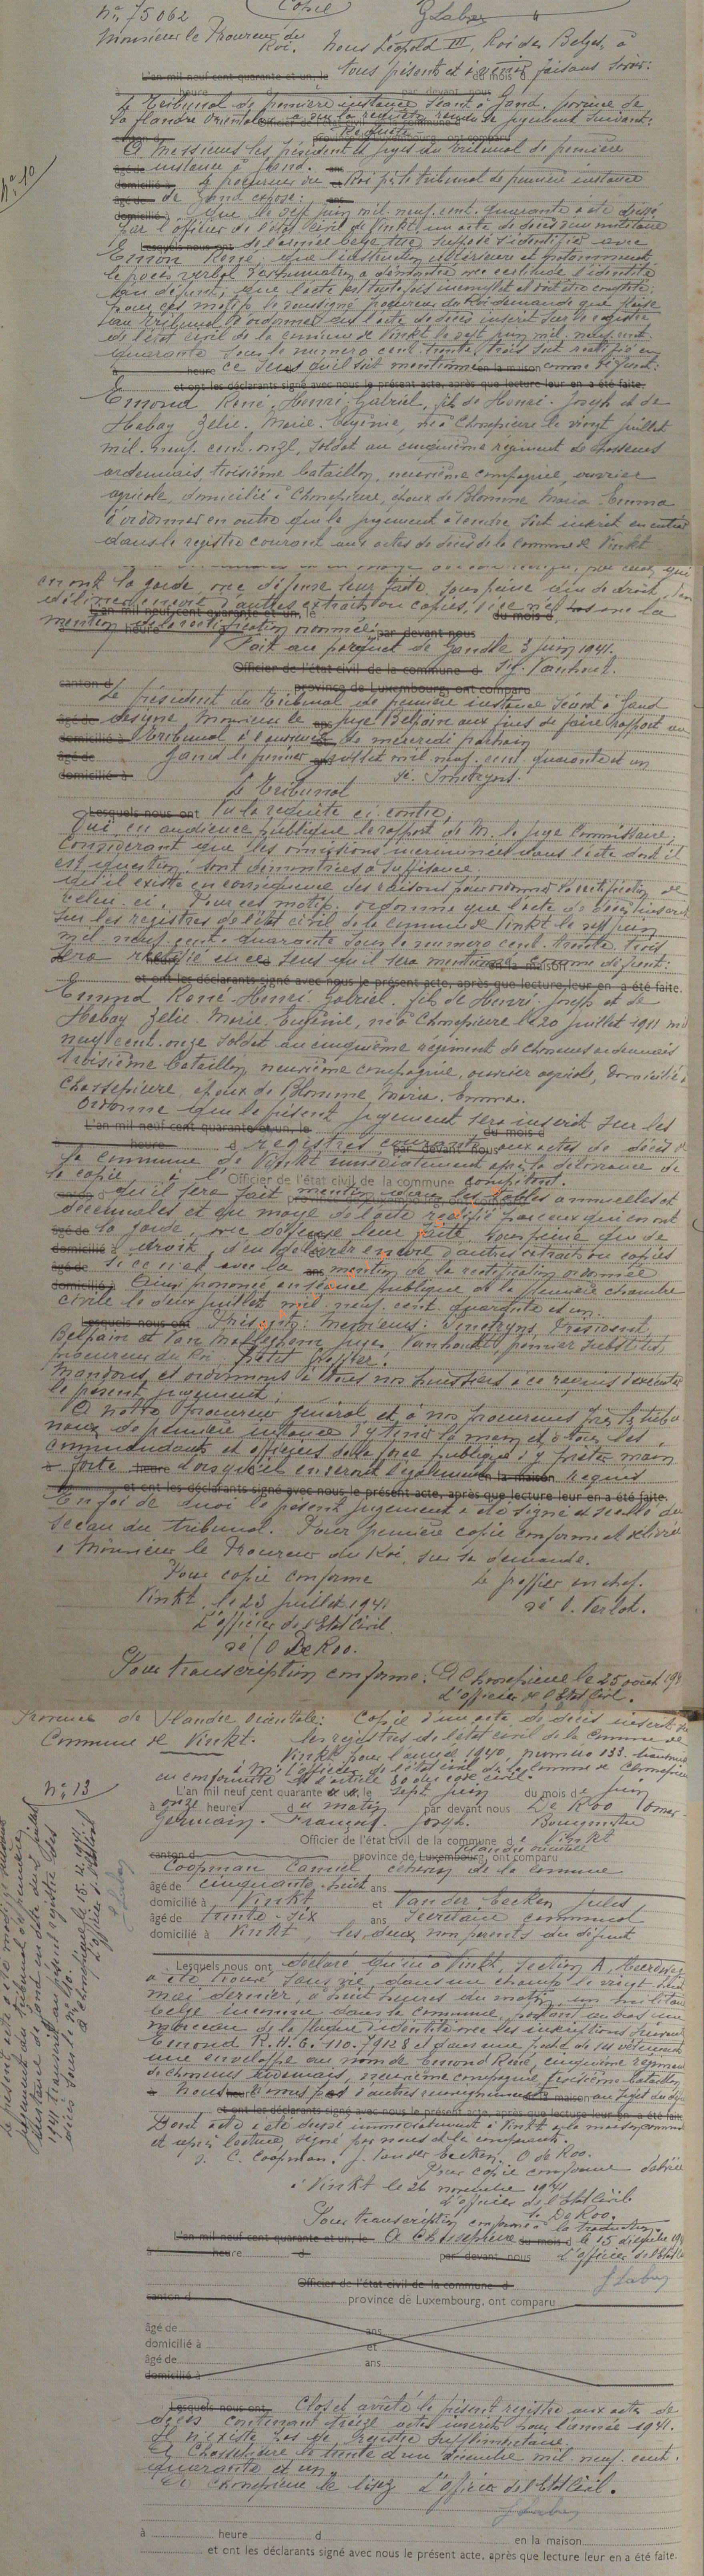 N° 75062 Copie G Labay
Monsieur le Procureur du
Roi. Nous Léopold III, Roi des Belges, à
L'an mil neuf cent quarante et un, le tous présents et à venir faisons savoir:
à heure par devant nous
Le Tribunal de première instance séant à Gand, province de
la flandre Orientale, a sur la requête rendu le jugement suivant:
Requête
N° 10
A Messieurs les président et juges du tribunal de première
instance à Gand.
Le procureur du Roi près le tribunal de première instance
de Gand expose:
Que le sept juin mil neuf cent quarante a été dressé
par l'officier de l'état civil de Vinkt un acte de décès d'un militaire
Lesquels nous ont de l'armée belge, tué, supposé s'identifier avec
Emon René, que l'instruction ultérieure et notamment
le procès verbal d'exhumation a démontré avec certitude l'identité
du défunt, que l'acte est toutefois incomplet et doit être complété;
pour ces motifs le soussigné procureur du Roi demande que plaise
au tribunal d'ordonner que l'acte de décès inscrit sur le registre
de l'état civil de la commune de Vinkt le sept juin mil neuf cent
quarante sous le numéro cent trente trois soit rectifié en
à heure ce sens qu'il soit mentionné en la maison comme défunt:
et ont les déclarants signé avec nous le présent acte, après que lecture leur en a été faite.
Emond René. Henri. Gabriel, fils de Henri. Joseph et de
Habay Zélie. Marie. Eugénie, né à Chassepierre le vingt juillet
mil neuf cent onze, soldat au cinquième régiment de chasseurs
ardennais, troisième bataillon, neuvième compagnie, ouvrier
agricole, domicilié à Chassepierre, époux de Blomme Maria Emma
d'ordonner en outre que le jugement à rendre soit inscrit en entier
dans le registre courant aux actes de décès de la commune de Vinkt
en ont la garde avec défense leur faite sous peine que de droit, d'en
délivrer encore d'autres extraits ou copies, si ce n'est avec la
L'an mil neuf cent quarante et un, le du mois d
mention de la rectification ordonnée.
heure par devant nous
Fait au parquet de Gand le 3 juin 1941.
Officier de l'état civil de la commune d Sig. Vanhout.
canton d province de Luxembourg, ont comparu
Le président du Tribunal de première instance séant à Gand
âgé de désigne Monsieur le ans juge Belpaire aux fins de faire rapport au
domicilié à Tribunal à l'audience de mercredi prochain
âgé de Gand le premier juillet mil neuf cent quarante et un
domicilié à sé. Smetryns.
Le Tribunal
Lesquels nous ont Vu la requête ci-contre,
Ouï en audience publique le rapport de M. le juge Commissaire;
Considérant que les omissions mentionnées dans l'acte dont il
est question, sont démontrées à suffisance;
qu'il existe en conséquence des raisons pour ordonner la rectification de
celui-ci. Pour ces motifs ordonne que l'acte de décès inscrit
sur les registres de l'état civil de la commune de Vinkt le sept juin
mil neuf cent quarante sous le numéro cent trente trois
sera rectifié en ce sens qu'il sera mentionné en la maison comme défunt:
et ont les déclarants signé avec nous le présent acte, après que lecture leur en a été faite.
Emond René. Henri. Gabriel. fils de Henri. Joseph et de
Habay Zélie. Marie. Eugénie, né à Chassepierre le 20 juillet 1911 mil
neuf cent onze soldat au cinquième régiment de chasseurs ardennais
troisième bataillon, neuvième compagnie, ouvrier agricole, domicilié à
Chassepierre, époux de Blomme Maria. Emma.
Ordonne que le présent jugement sera inscrit sur les
L'an mil neuf cent quarante et un, le du mois d
heure d registres courants par devant nous aux actes de décès de
la commune de Vinkt immédiatement après la délivrance de
la copie à l'Officier de l'état civil de la commune compétent.
qu'il sera fait mention dans les tables annuelles et
décennales et en marge de l'acte rectifié par ceux qui en ont
âgé de la garde, avec défense leur faite sous peine que de
domicilié à droit, d'en délivrer encore d'autres extraits ou copies
âgé de si ce n'est avec la ans mention de la rectification ordonnée
domicilié à Ainsi prononcé en séance publique de la première chambre
civile le deux juillet mil neuf cent quarante et un.
Lesquels nous ont Présents: Messieurs: Smetryns, Président,
Belpaire et Van juges, Vanhout, premier substitut,
procureur du Roi, greffier.
Mandons et ordonnons à tous nos huissiers à ce requis d'exécuter
le présent jugement;
A notre procureur général et à nos procureurs près les tribu
naux de première instance d'y tenir la main et à tous les
commandants et officiers de la force publique d'y prêter main
à forte heure lorsqu'ils en seront légalement en la maison requis
et ont les déclarants signé avec nous le présent acte, après que lecture leur en a été faite.
En foi de quoi le présent jugement a été signé et scellé du
sceau du tribunal. Pour première copie conforme et délivrée
à Monsieur le Procureur du Roi, sur sa demande.
Pour copie conforme Le greffier en chef.
Vinkt, le 23 juillet 1941 sé
L'officier de l'Etat Civil
sé (O De Roo.
Pour transcription conforme: A Chassepierre le 25 août 194
L'officier de l'Etat Civil.
Province de Flandre Orientale: Copie d'un acte de décès inscrit dans
Commune de Vinkt. les registres de l'état civil de la commune de
Vinkt pour l'année 1940, numéro 133. transmise
à Mr l'officier de l'état civil de la commune de Chassepierre
en conformité de l'article 80 du code civil.
N° 13
L'an mil neuf cent quarante le sept juin du mois de juin
à onze heures du matin par devant nous De Roo Omer
Germain. François. Joseph. Bourgmestre
Officier de l'état civil de la commune de Vinkt
canton d province de Luxembourg, ont comparu Flandre orientale
Coopman Camiel échevin de la commune
âgé de cinquante-huit ans
domicilié à Vinkt et Van der Eecken Jules
âgé de trente-six ans secrétaire communal
domicilié à Vinkt, les deux non parents du défunt
Lesquels nous ont déclaré qu'à Vinkt, section A,
a été trouvé sans vie, dans un champ le vingt-huit
mai dernier, à huit heures du matin, un militaire
belge inconnu dans la commune, portant au bras un
morceau de la plaque d'identité avec les inscriptions suivantes
Emond R. H. G. 110.7928 et dans une poche de ses vêtements
une enveloppe au nom de Emond René, cinquième régiment
de chasseurs ardennais, neuvième compagnie troisième bataillon
à Nous heure n'avons pas d'autres renseignements en la maison au sujet du défunt
et ont les déclarants signé avec nous le présent acte, après que lecture leur en a été faite.
Dont acte a été dressé immédiatement à Vinkt en la maison communale
et après lecture signé par nous et les comparants.
s. C. Coopman. J. Van der Eecken. O De Roo.
Pour copie conforme délivrée
à Vinkt le 26 novembre 1941
L'officier de l'Etat Civil.
sé De Roo.
Pour transcription conforme à la traduction.
L'an mil neuf cent quarante et un, le A Chassepierre du mois d le 15 décembre 194
à heure d par devant nous L'officier de l'Etat Civil
Officier de l'état civil de la commune d G Labay
canton d province de Luxembourg, ont comparu
âgé de ans
domicilié à et
âgé de ans
domicilié à
Lesquels nous ont Clos et arrêté le présent registre aux actes de
décès contenant treize actes inscrits pour l'année 1941.
Il n'existe pas de registre supplémentaire.
A Chassepierre le trente et un décembre mil neuf cent
quarante et un.
L'officier de l'Etat Civil.
G Labay
à heure d en la maison
et ont les déclarants signé avec nous le présent acte, après que lecture leur en a été faite.